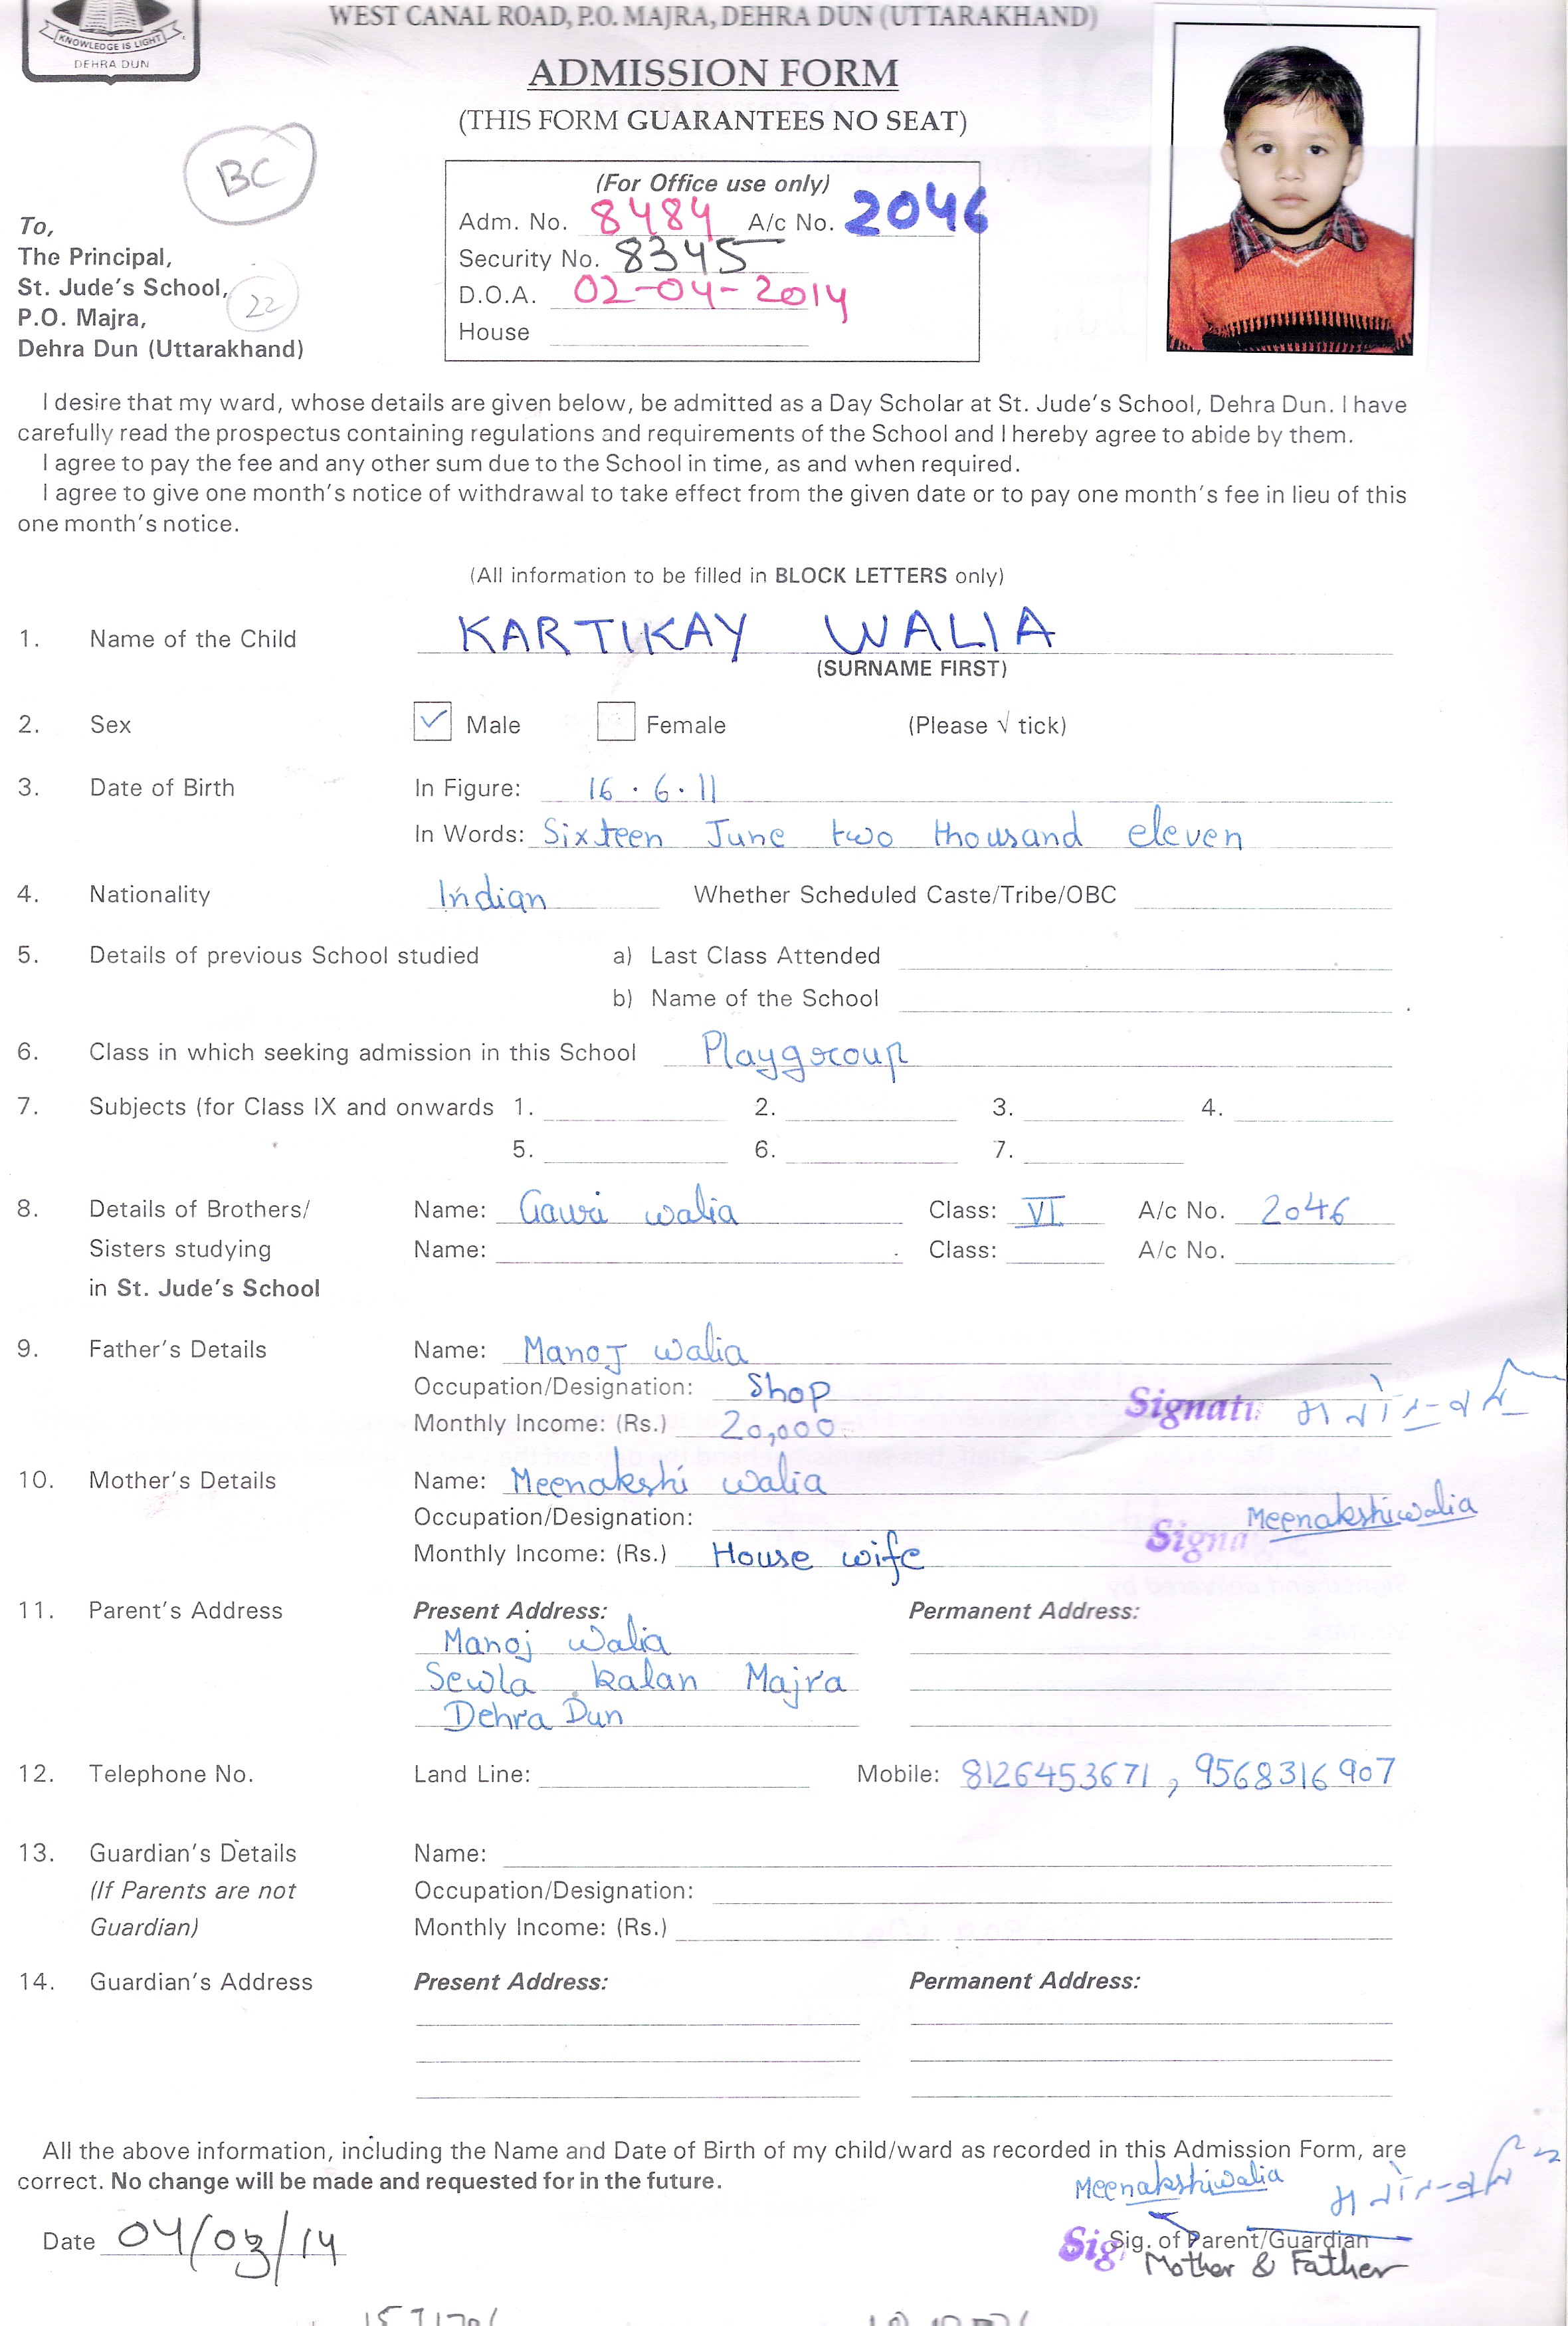 WEST CANAL ROAD, P.O. MAJRA, DEHRA DUN (UTTARAKHAND)
KNOWLEDGE IS LIGHT
DEHRA DUN
ADMISSION FORM
(THIS FORM GUARANTEES NO SEAT)
BC
(For Office use only)
Adm. No. 8484 A/c No. 2046
Security No. 8345
D.O.A. 02-04-2014
House
To,
The Principal,
St. Jude's School,
22
P.O. Majra,
Dehra Dun (Uttarakhand)
I desire that my ward, whose details are given below, be admitted as a Day Scholar at St. Jude's School, Dehra Dun. I have
carefully read the prospectus containing regulations and requirements of the School and I hereby agree to abide by them.
I agree to pay the fee and any other sum due to the School in time, as and when required.
I agree to give one month's notice of withdrawal to take effect from the given date or to pay one month's fee in lieu of this
one month's notice.
(All information to be filled in BLOCK LETTERS only)
1. Name of the Child KARTIKAY WALIA
(SURNAME FIRST)
2. Sex ✓ Male Female (Please √ tick)
3. Date of Birth In Figure: 16 . 6 . 11
In Words: Sixteen June two thousand eleven
4. Nationality Indian Whether Scheduled Caste/Tribe/OBC
5. Details of previous School studied a) Last Class Attended
b) Name of the School
6. Class in which seeking admission in this School Playgroup
7. Subjects (for Class IX and onwards 1. 2. 3. 4.
5. 6. 7.
8. Details of Brothers/ Name: Gauri walia Class: VI A/c No. 2046
Sisters studying Name: Class: A/c No.
in St. Jude's School
9. Father's Details Name: Manoj walia
Occupation/Designation: Shop
Monthly Income: (Rs.) 20,000
10. Mother's Details Name: Meenakshi walia
Occupation/Designation: Meenakshi walia
Monthly Income: (Rs.) House wife
11. Parent's Address Present Address: Permanent Address:
Manoj walia
Sewla kalan Majra
Dehra Dun
12. Telephone No. Land Line: Mobile: 8126453671, 9568316907
13. Guardian's Details Name:
(If Parents are not Occupation/Designation:
Guardian) Monthly Income: (Rs.)
14. Guardian's Address Present Address: Permanent Address:
All the above information, including the Name and Date of Birth of my child/ward as recorded in this Admission Form, are
correct. No change will be made and requested for in the future.
Meenakshi walia
Date 04/03/14 Sig. of Parent/Guardian
Mother & Father